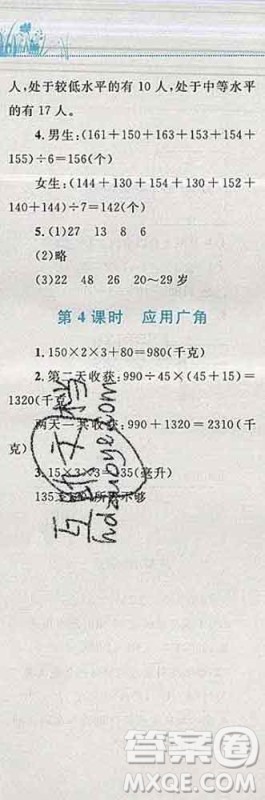 人,处于较低水平的有 10 人,处于中等水平
的有 17 人。
4. 男生:(161+150+163+153+154+
155)÷6=156(个)
女生:(144+130+154+130+152+
140+144)÷7=142(个)
5. (1)27 13 8 6
(2)略
(3)22 48 26 20～29 岁
第 4 课时 应用广角
1. 150×2×3+80=980(千克)
2. 第二天收获:990÷45×(45+15)=
1320(千克)
两天一共收获:990+1320=2310(千
克)
3. 15×3×3=135(毫升)
135 所 不够
hdzuoye.com
答案圈
MXQE.COM